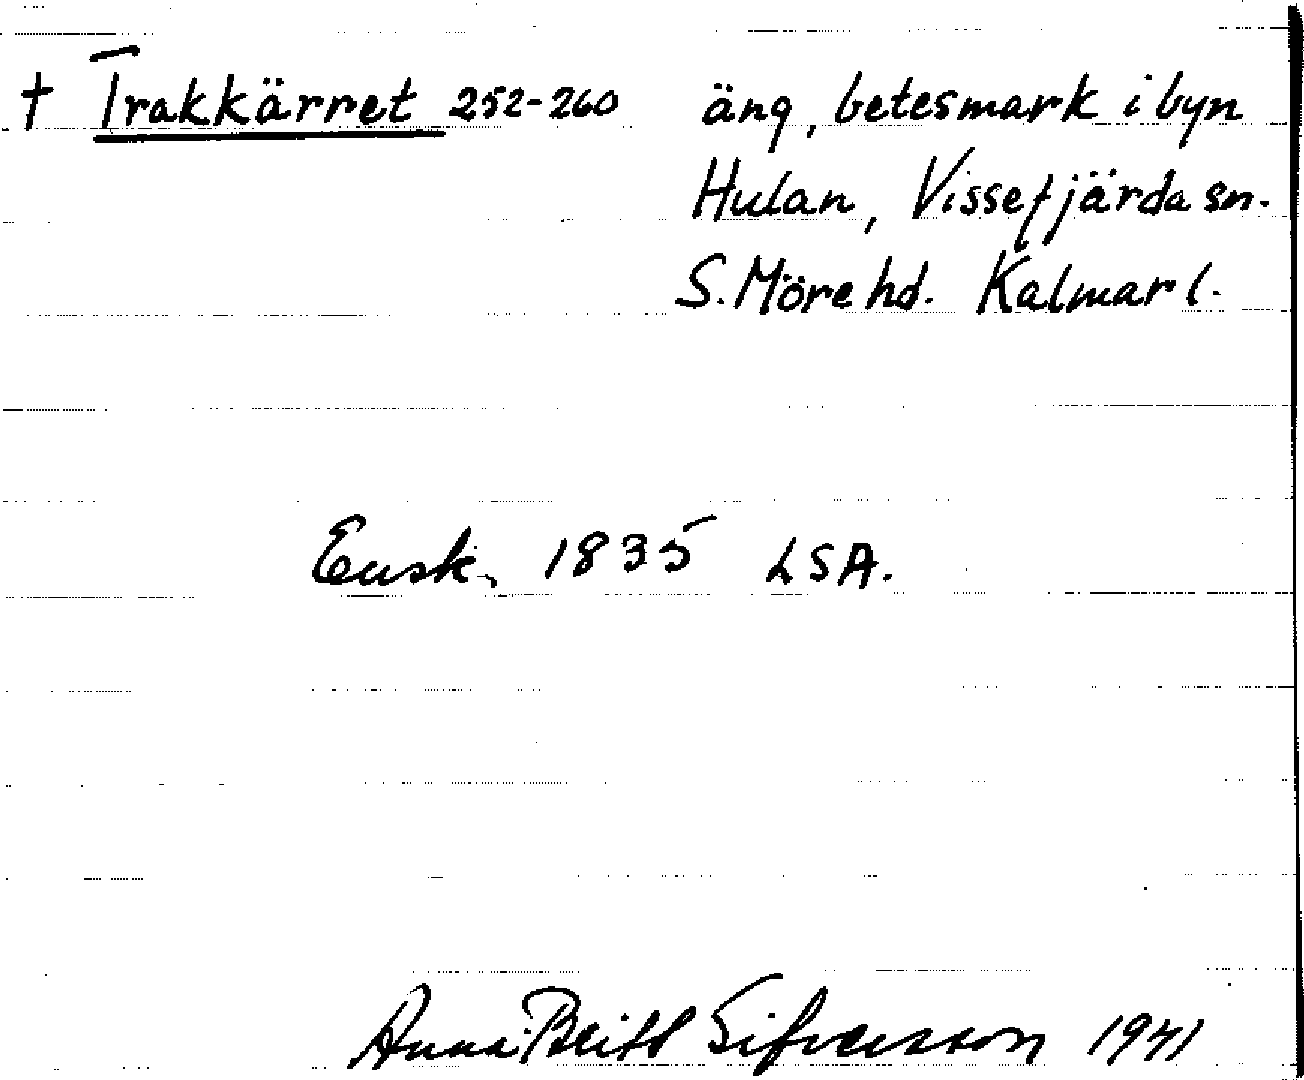 † Trakkärret 252-260 äng, betesmark i byn
Hulan, Vissefjärda sn.
S. Möre hd. Kalmar l.
Ensk. 1835 LSA.
Anna Britt Sifversson 1941